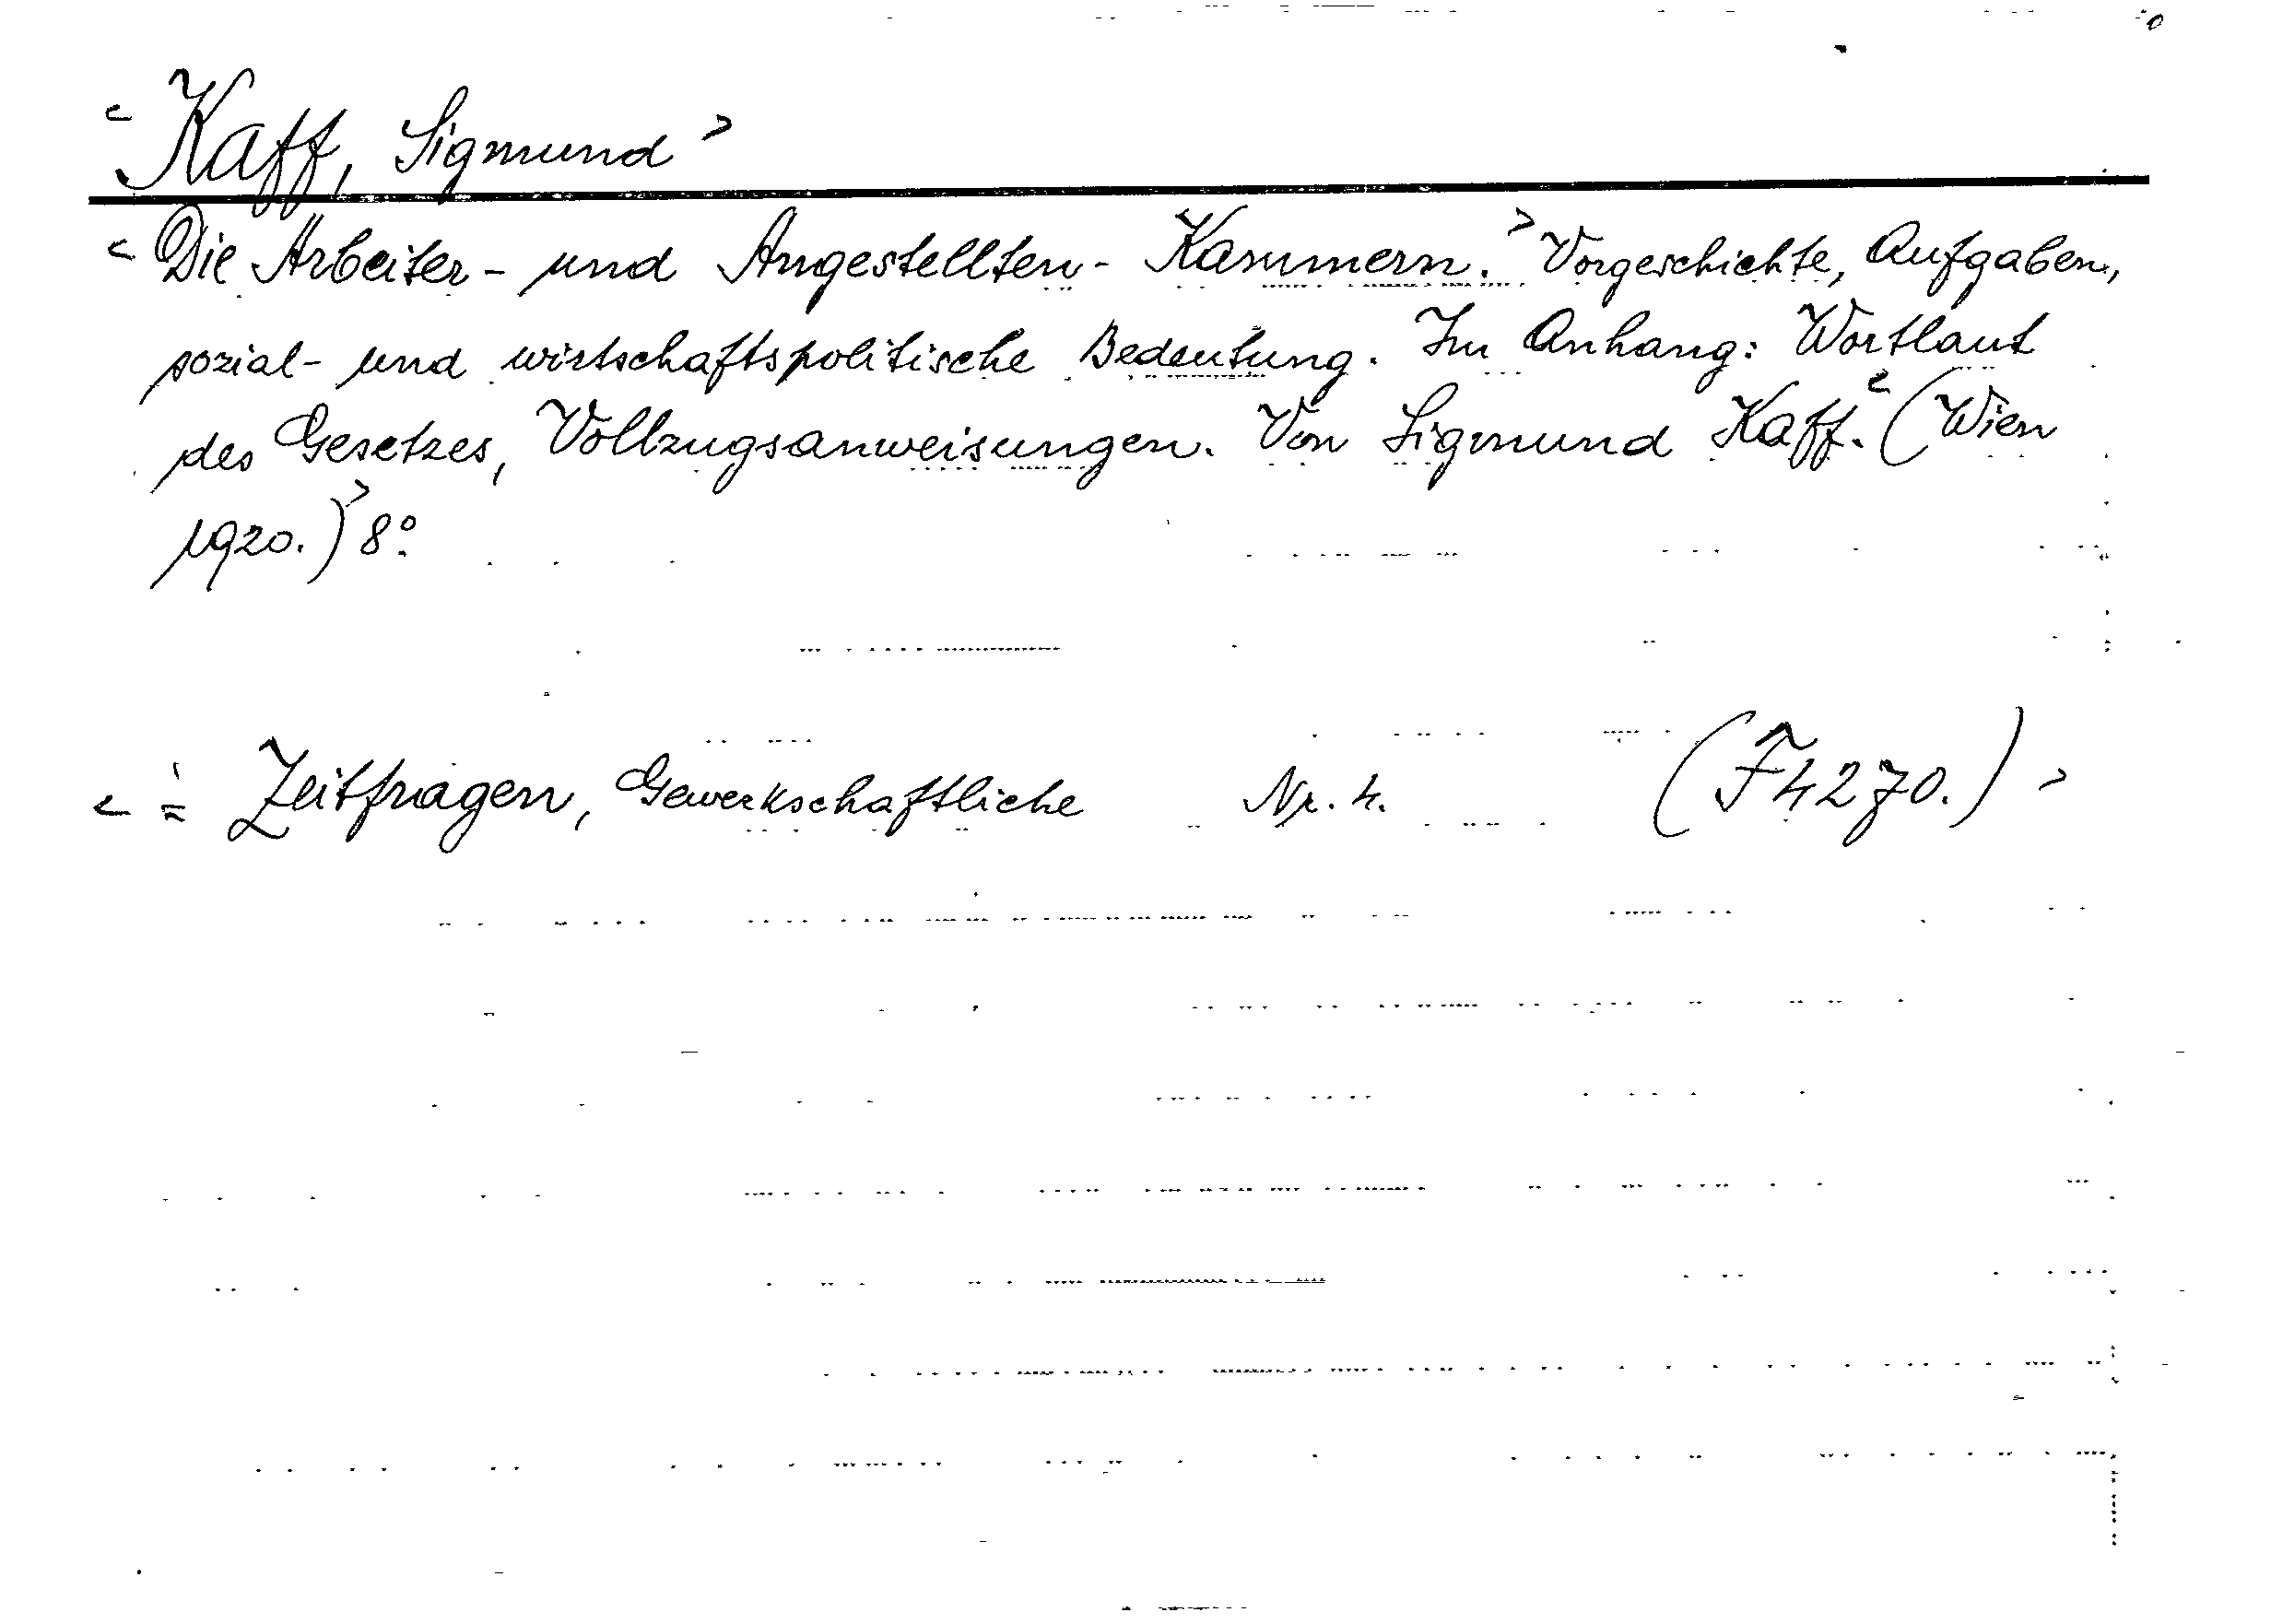 < Kaff, Sigmund >
< Die Arbeiter- und Angestellten-Kammern. > Vorgeschichte, Aufgaben,
sozial- und wirtschaftspolitische Bedeutung. Im Anhang: Wortlaut
des Gesetzes, Vollzugsanweisungen. Von Sigmund Kaff. < (Wien
1920.) > 8°.
< = Zeitfragen, Gewerkschaftliche Nr. 4. (F4270.) >